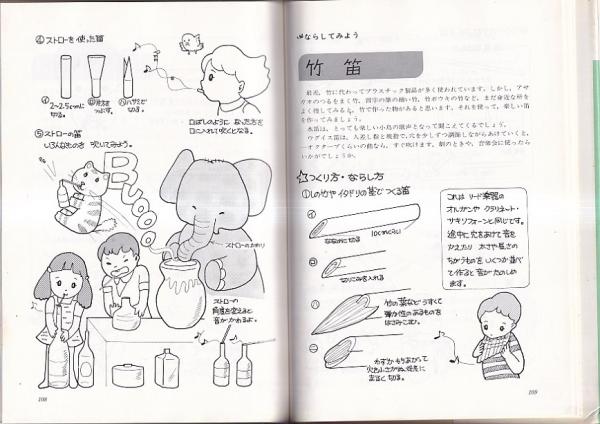 ④ストローを使った笛
㋑
2〜2.5cmに
切る。
㋺片方を
つぶす。
㋩ハサミで
切る。
口ばしのように なった方を
口に入れて吹くとなる。
⑤ストローの笛
いろんなものを 吹いてみよう。
Booo
ストローのかわり
ストローの
角度を変えると
音がかわるよ。
108
ならしてみよう
竹 笛
最近，竹に代わってプラスチック製品が多く使われています。しかし，アサ
ガオのつるをまく竹，習字の筆の細い竹，竹ボウキの竹など，まだ身近な所を
よく捜してみると，竹で作った物があると思います。それを使って，楽しい笛
を作ってみましょう。
水笛は，とっても楽しい小鳥の歌声となって聞こえてくるでしょう。
ウグイス笛は，人差し指と親指で，穴を少しずつ調節しながらあけていくと，
一オクターブくらいの曲なら，すぐ吹けます。劇のときや，音楽会に使ったら
いかがでしょうか。
つくり方・ならし方
①しの竹やイタドリの茎でつくる笛
㋑
ななめに切る
10cmくらい
㋺
切りこみを入れる
㋩
竹の葉などうすくて
弾力性のあるものを
はさみこむ。
㊁
わずかもりあがって
まるく切る。
これは リード楽器の
オルガンや クラリネット・
サキソフォーンと同じです。
途中に穴をあけて音を
かえたり 太さや長さの
ちがうものを いくつか並べ
て作ると 音がたのしめ
ます。
109